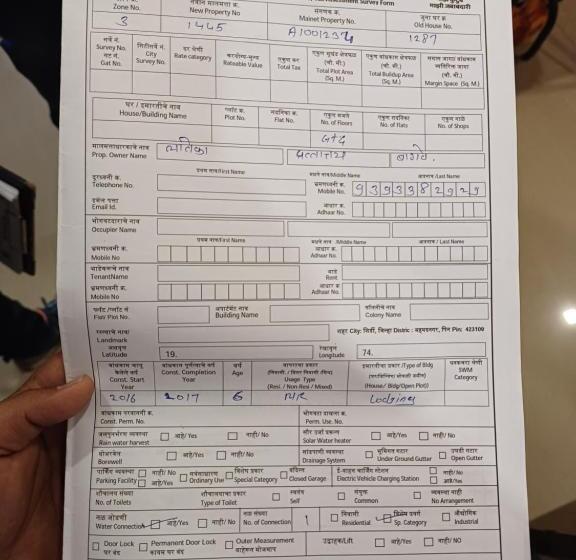 ssment Survey Form
Zone No. New Property No मालमत्ता क्र. Mainet Property No. जुना घर क्र Old House No. माझी जबाबदारी
3 1445 A1001234 1287
सर्वे नं. Survey No. गट नं. Gat No. सिटीसर्वे नं. City Survey No. दर श्रेणी Rate category करयोग्य-मुल्य Rateable Value एकूण कर Total Tax एकुण भूखंड क्षेत्रफळ (चौ. मी.) Total Plot Area (Sq. M.) एकुण बांधकाम क्षेत्रफळ (चौ. मी.) Total Buildup Area (Sq. M.) Margin Space (Sq. M.)
घर / इमारतीचे नाव House/Building Name प्लॉट क्र. Plot No. सदनिका क्र. Flat No. एकुण मजले No. of Floors एकुण सदनिका No. of Flats एकुण गाळे No. of Shops
G+4
मालमत्ताधारकाचे नाव Prop. Owner Name
प्रथम नाव/First Name मधले नाव/Middle Name आडनाव /Last Name
दुरध्वनी क्र. Telephone No. भ्रमणध्वनी क्र. Mobile No. 9393382929
इमेल पत्ता Email Id. आधार क्र. Adhaar No.
भोगवटदाराचे नाव Occupier Name
प्रथम नाव/First Name मधले नाव /Middle Name आडनाव / Last Name
भ्रमणध्वनी क्र. Mobile No आधार क्र. Adhaar No.
भाडेकरूचे नाव TenantName भाडे Rent
भ्रमणध्वनी क्र. Mobile No आधार क्र. Adhaar No.
फ्लॅट /प्लॉट नं Flat/ Plot No. अपार्टमेंट नाव Building Name कॉलनीचे नाव Colony Name
रस्त्याचे नाव/ Landmark शहर City: शिर्डी, जिल्हा Distric : अहमदनगर, पिन Pin: 423109
अक्षवृत्त Latitude 19. रेखावृत्त Longitude 74.
बांधकाम चालू केलेले वर्ष Const. Start Year बांधकाम पुर्णत्वाचे वर्ष Const. Completion Year वर्ष Age वापराचा प्रकार Usage Type (Resi. / Non-Resi / Mixed) इमारतीचा प्रकार /Type of Bldg (House/ Bldg/Open Plot) घनकचरा श्रेणी SWM Category
2016 2017 6 NR Lodging
बांधकाम परवानगी क्र. Const. Perm. No. भोगवटा दाखला क्र. Perm. Use. No.
जलपुनर्भरण व्यवस्था Rain water harvest आहे/Yes नाही/No सौर उर्जा प्रकल्प Solar Water heater आहे/Yes नाही/No
बोअरवेल Borewell आहे/Yes नाही/No सांडपाणी व्यवस्था Drainage System भूमिगत गटार Under Ground Gutter उघडी गटार Open Gutter
पार्किंग व्यवस्था Parking Facility नाही/No आहे/Yes सर्वसाधारण Ordinary Use विशेष प्रकार Special Category बंदिस्त Closed Garage ई-वाहन चार्जिंग स्टेशन Electric Vehicle Charging Station नाही/No आहे/Yes
शौचालय संख्या No. of Toilets शौचालयाचा प्रकार Type of Toilet स्वतंत्र Self संयुक्त Common व्यवस्था नाही No Arrangement
नळ जोडणी Water Connection आहे/Yes नाही/No नळ संख्या No. of Connection 1 निवासी Residential विशेष वर्ग Sp. Category औद्योगिक Industrial
Door Lock घर बंद Permanent Door Lock कायम घर बंद Outer Measurement बाहेरून मोजमाप उदवाहक/Lift आहे/Yes नाही/No